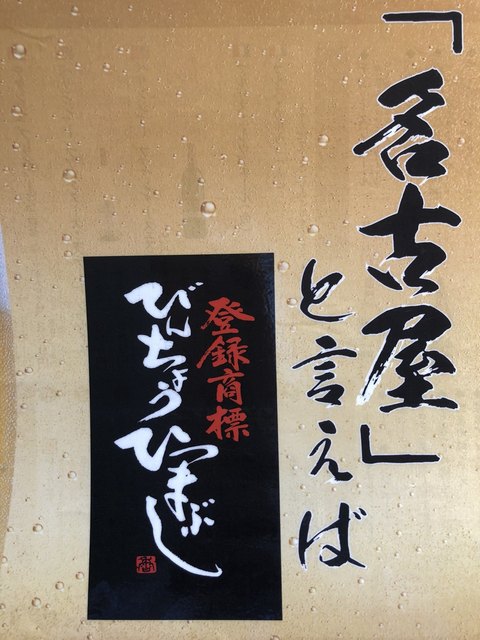 「名古屋」
と言えば
登録商標
びんちょう
ひつまぶし